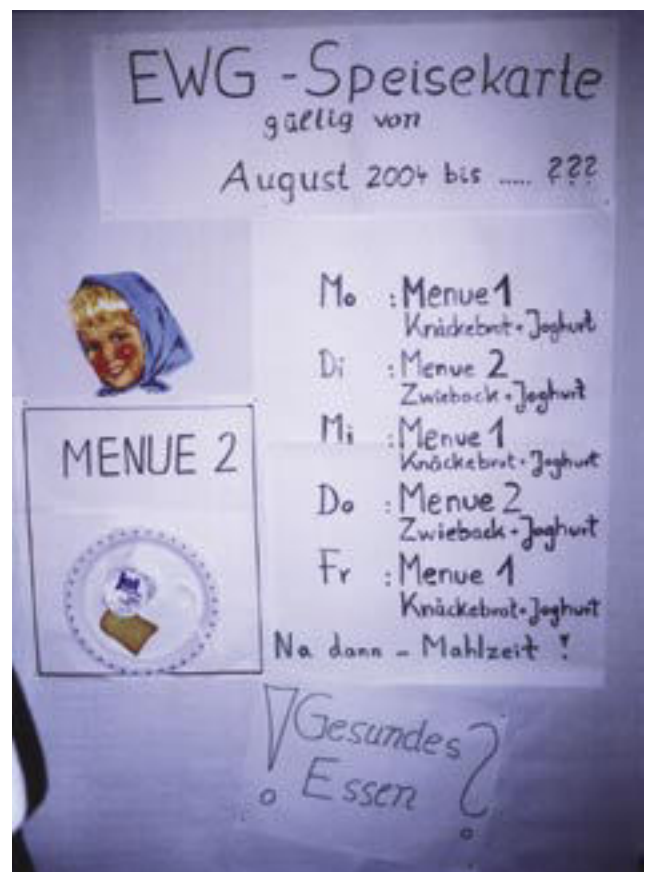 EWG - Speisekarte
gültig von
August 2004 bis ..... ???
Mo : Menue 1
Knäckebrot + Joghurt
Di : Menue 2
Zwieback + Joghurt
Mi : Menue 1
Knäckebrot + Joghurt
Do : Menue 2
Zwieback + Joghurt
Fr : Menue 1
Knäckebrot + Joghurt
Na dann - Mahlzeit !
MENUE 2
! Gesundes
Essen ?